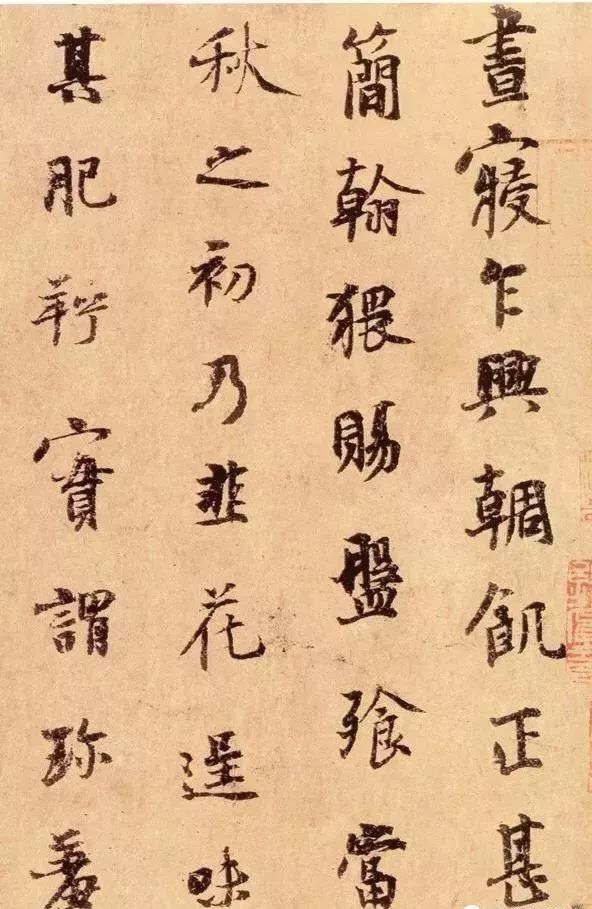 晝寢乍興輖飢正甚
簡翰猥賜盤飧當
秋之初乃韭花逞味
其肥羜實謂珍羞